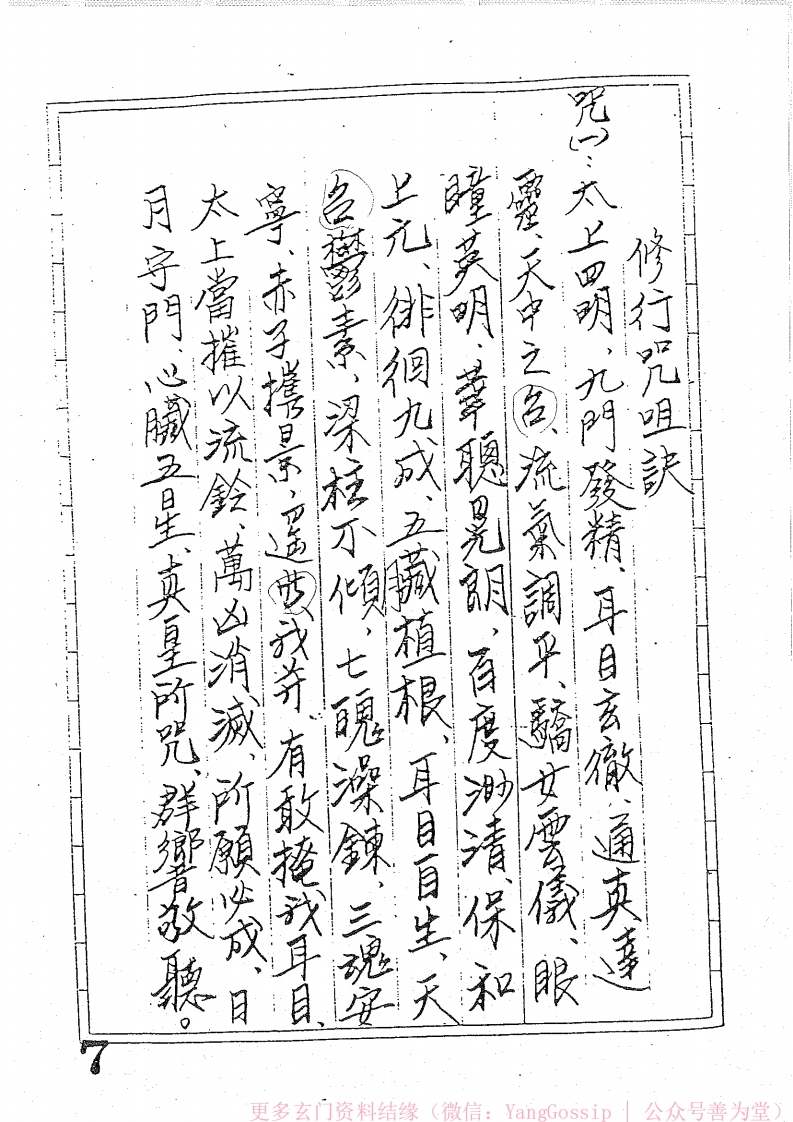 修行咒咀訣
咒(一):太上四明、九門發精、耳目玄徹、通真達
靈、天中之台、流氣調平、驕女雲儀、眼
瞳英明、華聰晃朗、百度渺清、保和
上元、徘徊九成、五臟植根、耳目自生、天
台鬱素、梁柱不傾、七魄澡鍊、三魂安
寧、赤子攜景、遥與我并、有敢掩我耳目、
太上當摧以流鈴、萬凶消滅、所願必成、日
月守門、心臟五星、真皇所咒、群響敬聽。
7
更多玄门资料结缘（微信：YangGossip | 公众号善为堂）